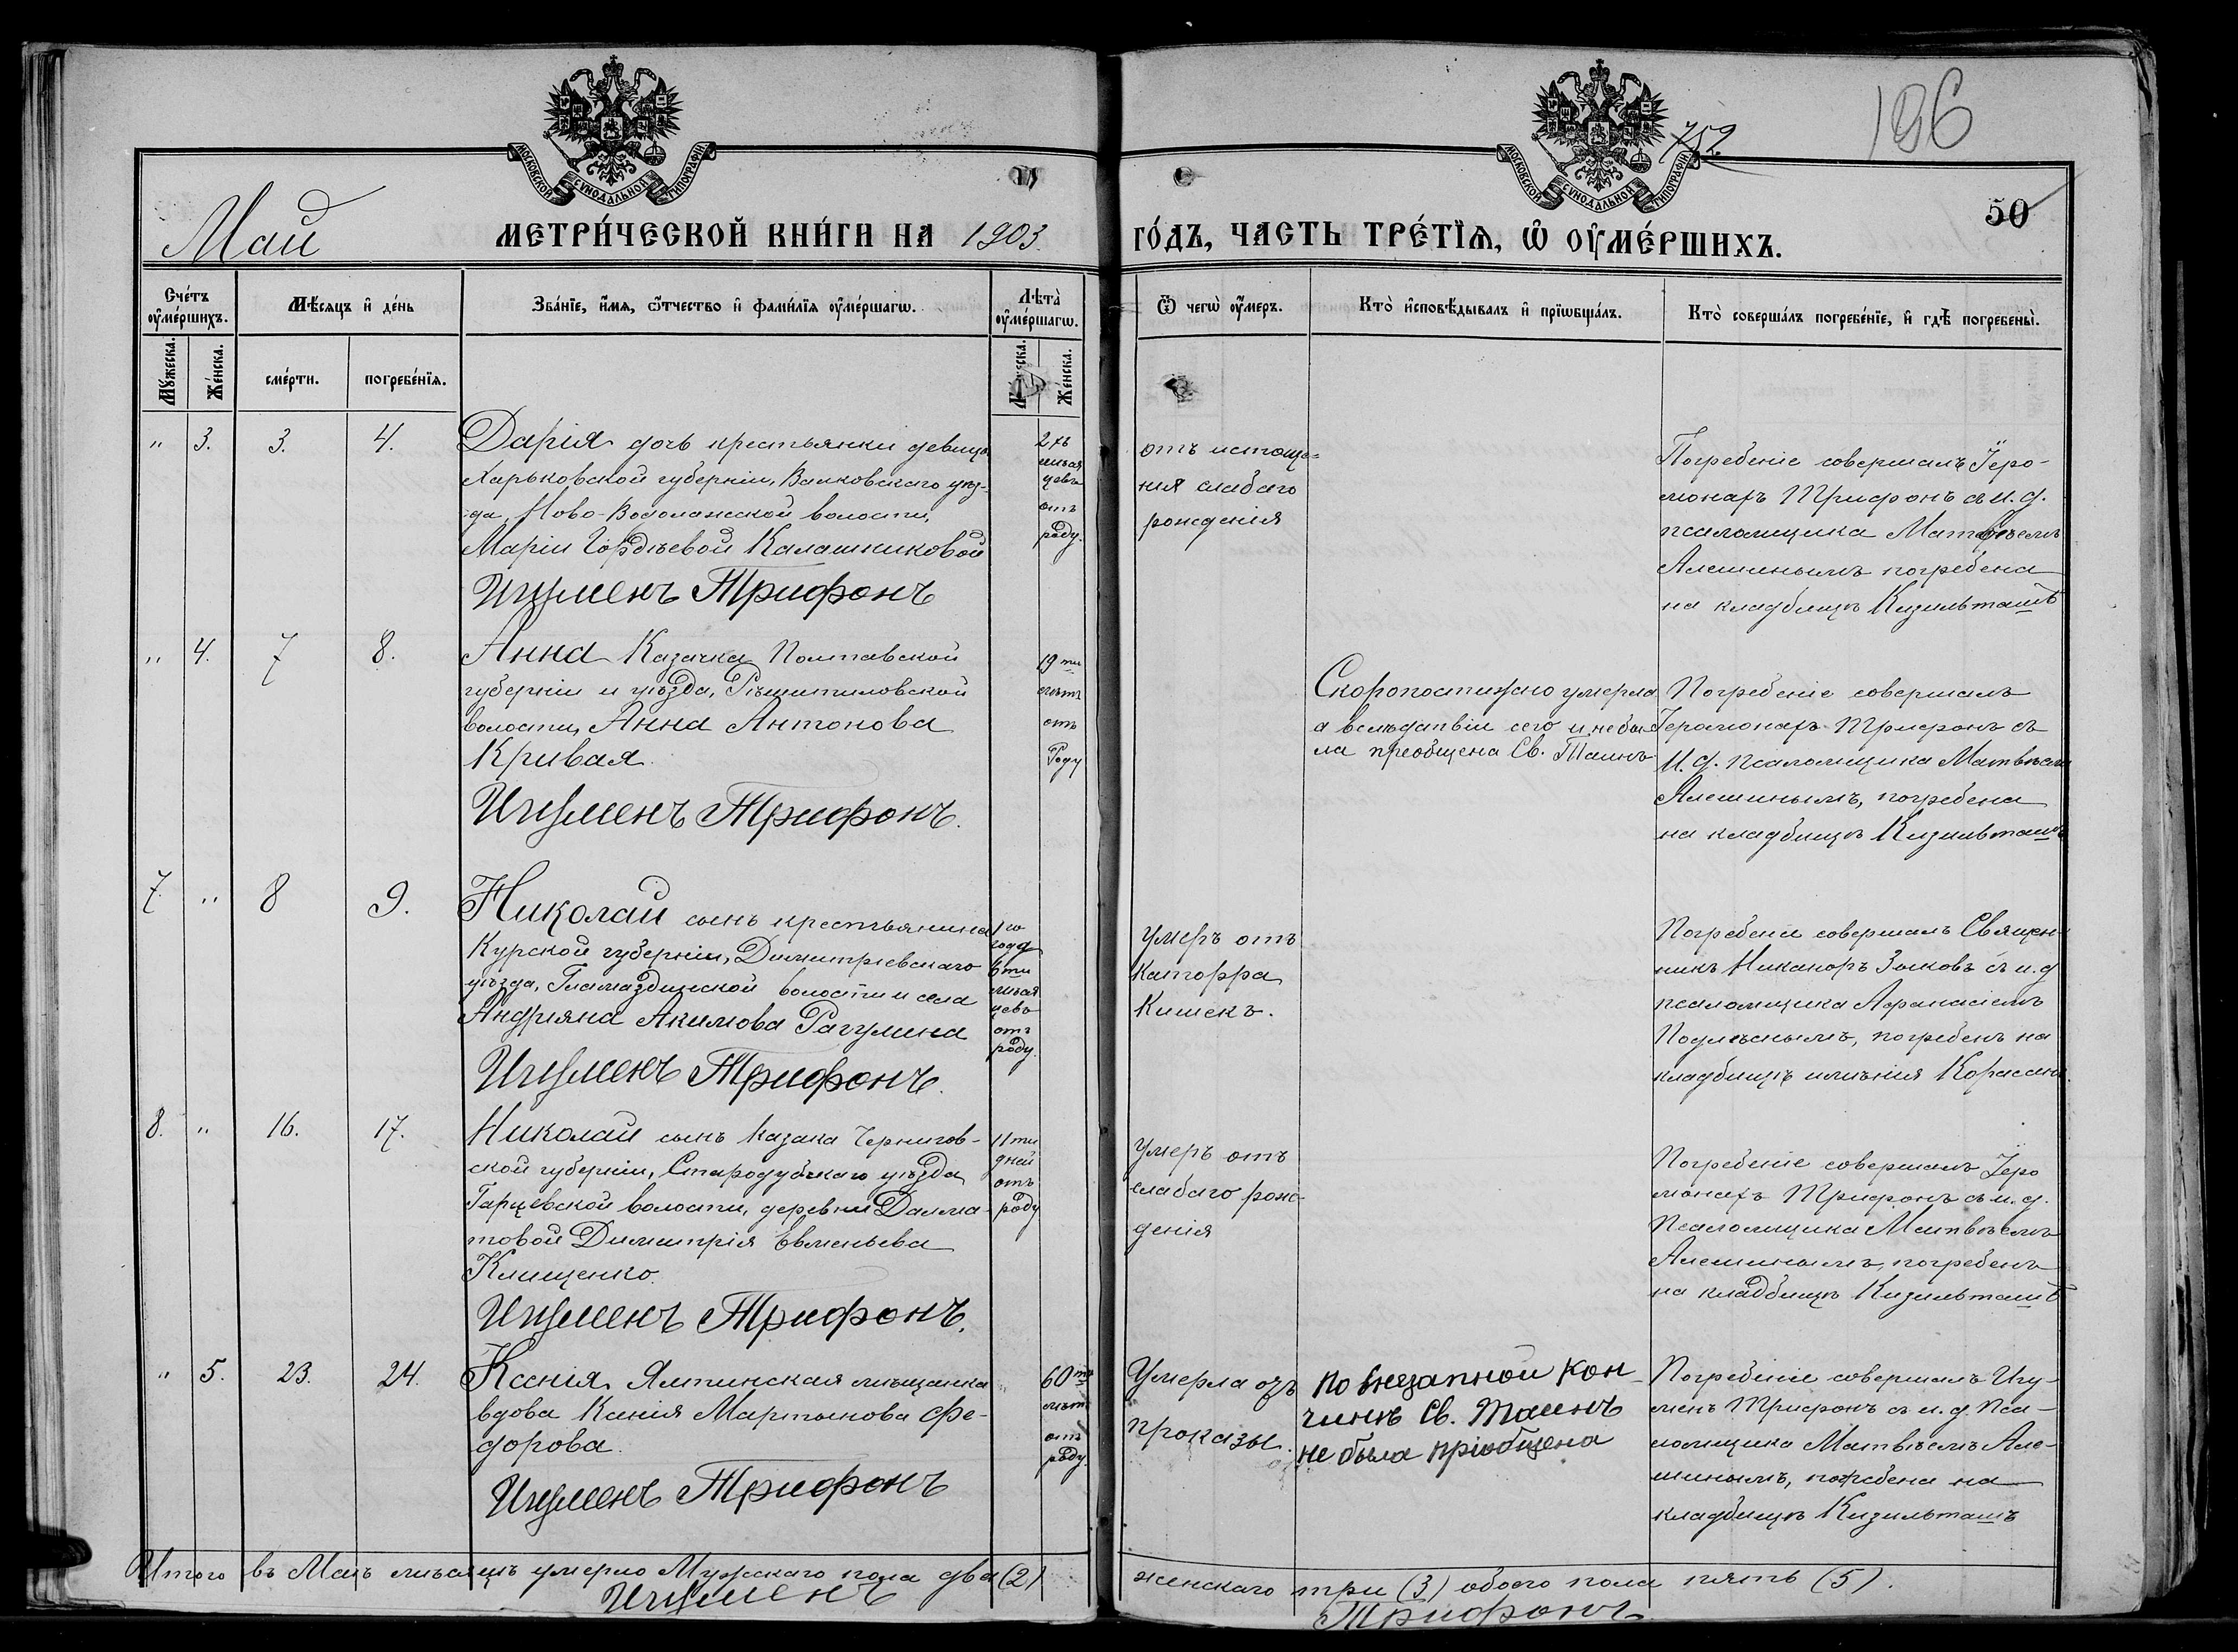 МОСКОВСКОЙ СѴНОДАЛЬНОЙ ТИПОГРАФІИ
МОСКОВСКОЙ СѴНОДАЛЬНОЙ ТИПОГРАФІИ
752
196
50
Май
МЕТРИ́ЧЕСКОЙ КНИ́ГИ НА 1903.
ГО́ДЪ, ЧАСТЬ ТРЕ́ТІѦ, Ѡ ОУ҆МЕ́РШИХЪ.
Сче́тъ оу҆ме́ршихъ.
Мѣ́сяцъ и҆ де́нь
Зва́нїе, и҆́мѧ, ѻ҆́тчество и҆ фами́лїѧ оу҆ме́ршагѡ.
Лѣта̀ оу҆ме́ршагѡ.
Ѿ чегѡ̀ оу҆́меръ.
Кто̀ и҆сповѣ́дывалъ и҆ прїѡбща́лъ.
Кто̀ соверша́лъ погребе́нїе, и҆ гдѣ̀ погребены̀.
Мꙋ́жеска.
Же́нска.
сме́рти.
погребе́нїѧ.
Мꙋ́жеска.
Же́нска.
" 3. 3. 4.
Дарія дочь крестьянки девицы
Харьковской губерніи, Валковскаго уѣз-
да, Ново-Водолажской волости,
Маріи Гордѣевой Калашниковой
Игуменъ Трифонъ
2хъ
мѣся
цевъ
отъ
роду.
отъ истоще=
нія слабаго
рожденія
Погребеніе совершалъ Іеро-
монахъ Трифонъ съ и. д.
псаломщика Матвѣемъ
Алешинымъ погребена
на кладбищѣ Кизильташѣ
" 4. 7 8.
Анна Казачка Полтавской
губерніи и уѣзда, Рѣшитиловской
волости, Анна Антонова
Кривая.
Игуменъ Трифонъ.
19ти
лѣтъ
отъ
Роду
Скоропостижно умерла
а вслѣдствіи сего и не бы
ла преобщена Св. Таинъ
Погребеніе совершалъ
Іеромонахъ Трифонъ съ
И. д. псаломщика Матвѣемъ
Алешинымъ, погребена
на кладбищѣ Кизильташѣ
7. " 8 9.
Николай сынъ крестьянина
Курской губерніи, Димитріевскаго
уѣзда, Гламаздинской волости и села
Андрияна Акимова Рагулина
Игуменъ Трифонъ.
1го
года
6ти
мѣся
цевъ
отъ
роду.
Умеръ отъ
Каторра
Кишекъ.
Погребеніе совершалъ Священ-
никъ Никаноръ Зыковъ съ и. д
псаломщика Афанасіемъ
Подлѣснымъ, погребенъ на
кладбищѣ имѣнія Корасанъ.
8. " 16. 17.
Николай сынъ казака Чернигов-
ской губерніи, Стародубскаго уѣзда
Гарцевской волости, деревни Далма-
товой Димитрія Евменьева
Клищенко.
Игуменъ Трифонъ.
11ти
дней
отъ
роду
Умеръ отъ
слабаго рож-
денія
Погребеніе совершалъ Іеро
монахъ Трифонъ съ и. д.
Псаломщика Матвѣемъ
Алешинымъ, погребенъ
на кладбищѣ Кизильташѣ
" 5. 23. 24.
Ксенія Ялтинская мѣщанка
вдова Ксенія Мартынова Фе-
дорова.
Игуменъ Трифонъ
60ти
лѣтъ
отъ
роду.
Умерла отъ
проказы.
по внезапной кон-
чинѣ Св. Таинъ
не была пріобщена
Погребеніе совершалъ Игу-
менъ Трифонъ съ и. д. Пса-
ломщика Матвѣемъ Але-
шинымъ, погребена на
кладбищѣ Кизильташѣ
Итого въ Маѣ мѣсяцѣ умерло Мужскаго пола два (2)
женскаго три (3) обоего пола пять (5).
Игуменъ
Трифонъ